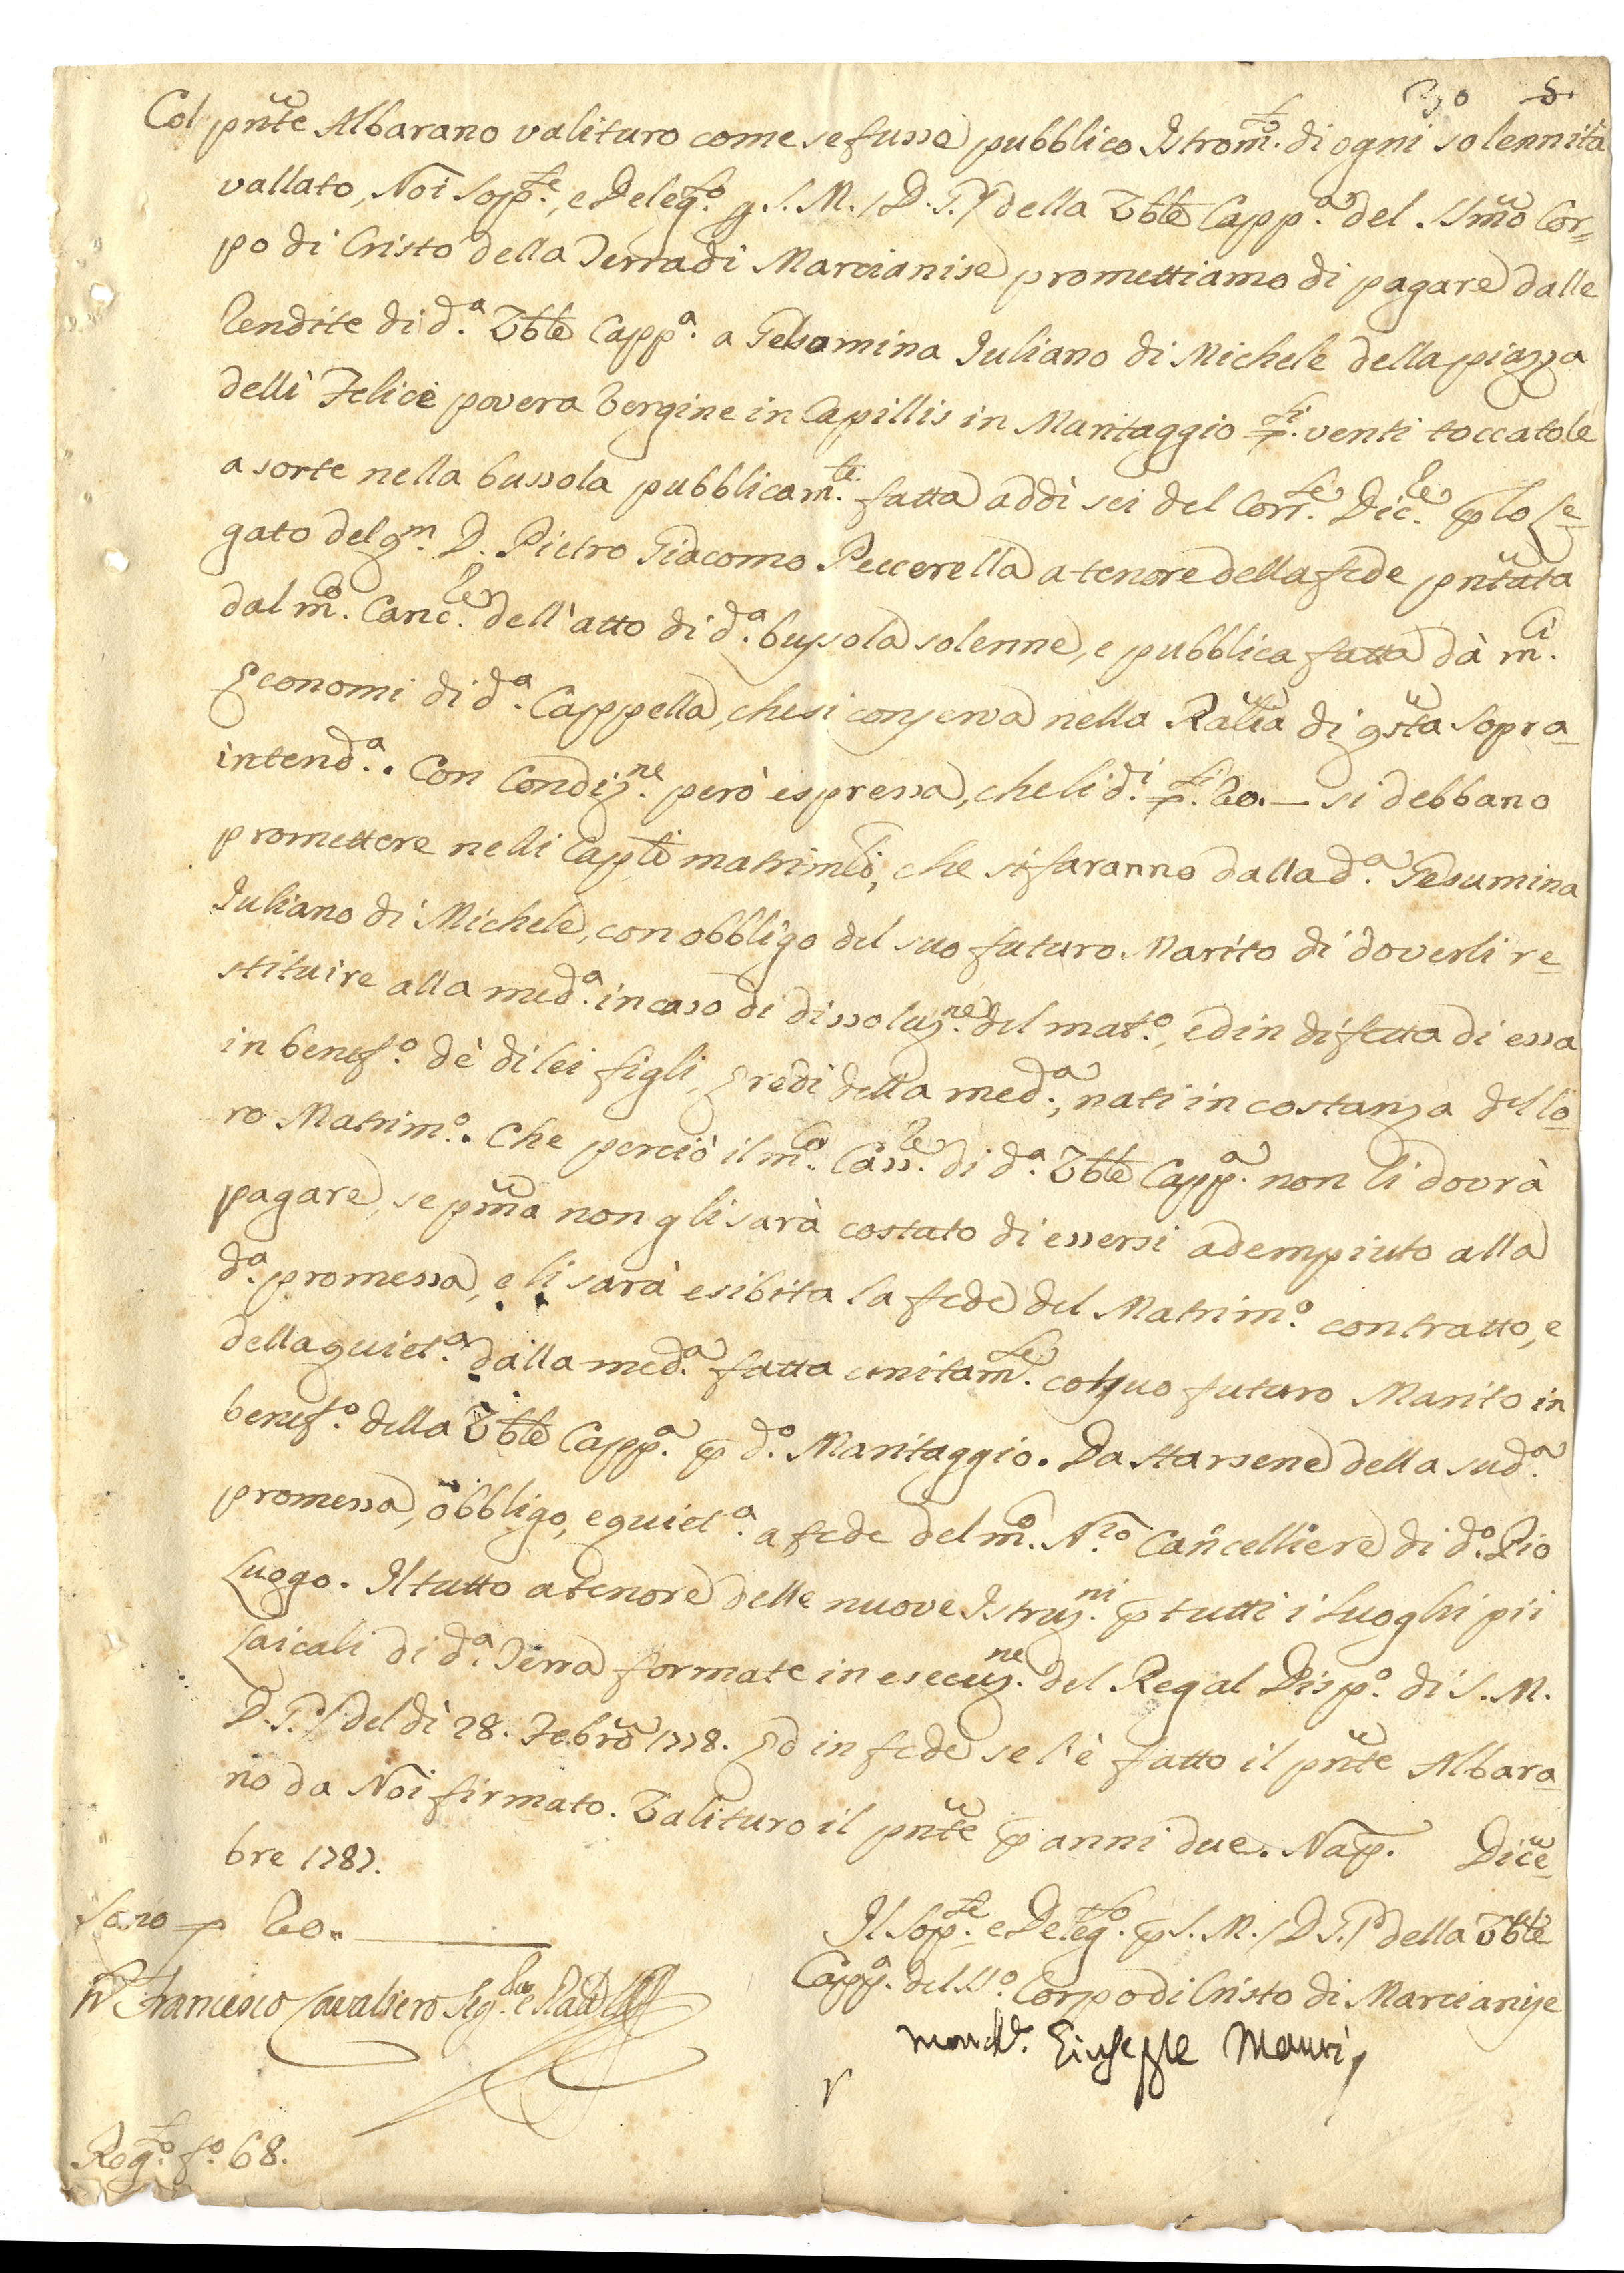 30
Col pñte Albarano valituro come se fusse pubblico Istrom.to di ogni solennità
vallato, Noi Sop.te, e Deleg.to p S. M. /D. G./ della Vble Capp.a del SSmo Cor=
po di Cristo della Terra di Marcianise promettiamo di pagare dalle
Rendite di d.a Vble Capp.a a Gelsomina Iuliano di Michele della piazza
delli Felici povera Vergine in Capillis in Maritaggio d.ti venti toccatole
a sorte nella bussola pubblicam.te fatta addì sei del Corr.te Dic.e p lo Le=
gato del q.m D. Pietro Giacomo Peccerella a tenore della fede pñtata
dal m.co Canc.re dell'atto di d.a bussola solenne, e pubblica fatta dà m.ci
Economi di d.a Cappella, che si conserva nella Ralta di qsta Sopra=
intend.a. Con Condiz.ne però espressa, che li d.i d.ti 20.— si debbano
promettere nelli Capli matrimli, che si faranno dalla d.a Gesumina
Iuliano di Michele, con obbligo del suo futuro Marito di doverli re=
stituire alla med.a in caso di dissoluz.ne del mat.o, ed in difetto di essa
in benef.o dè di lei figli, Eredi della med.a, nati in costanza del lo=
ro Matrim.o. Che perciò il m.co Cass.re di d.a Vble Capp.a non li dovrà
pagare, se pma non gli sarà costato di essersi adempiuto alla
d.a promessa, e li sarà esibita la fede del Matrim.o contratto, e
della quiet.a dalla med.a fatta unitam.te col suo futuro Marito in
benef.o della Vble Capp.a p d.o Maritaggio. Da starsene della sud.a
promessa, obbligo, e quiet.a a fede del m.co N.ro Cancelliere di d.o Pio
Luogo. Il tutto a tenore delle nuove Istruz.ni p tutti i Luoghi pii
Laicali di d.a Terra formate in esecuz.ne del Regal Disp.o di S. M.
D. G./ del dì 28. Febrõ 1778. Ed in fede se l'è fatto il pñte Albara=
no da Noi firmato. Valituro il pñte p anni due. Nap. Dice=
bre 1787.
Sono d.ti 20.
Il Sop.te e Deleg.to p S. M. /D. G./ della Vble
Capp.a del SS.o Corpo di Cristo di Marcianise
Francesco Cavaliero Seg.rio e Raz.le
Giuseppe Mauri
Reg.to f.o 68.